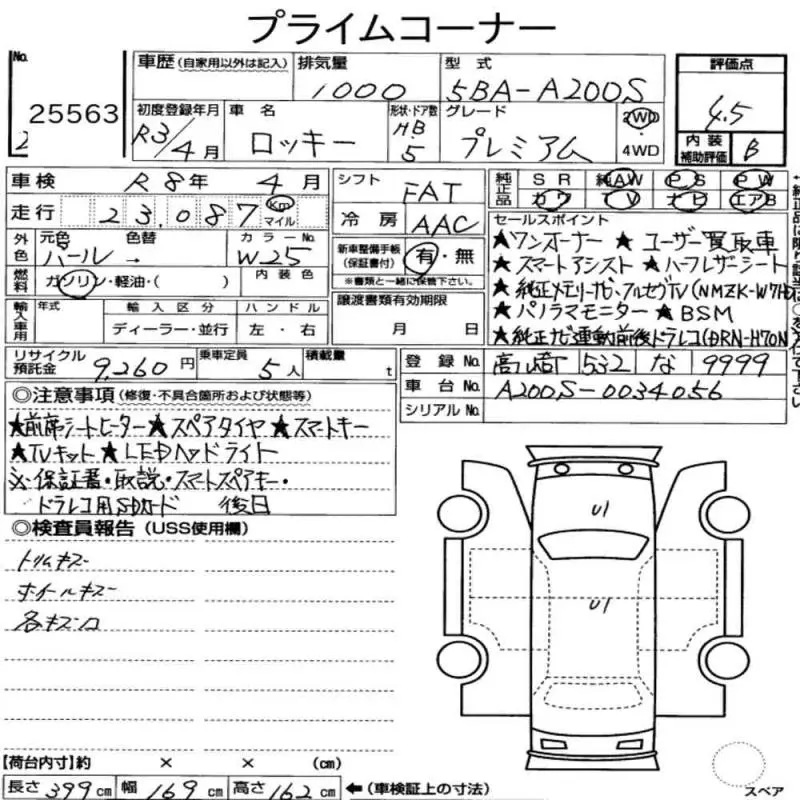 プライムコーナー
No.
25563
2
車歴（自家用以外は記入） 排気量 1000 型式 5BA-A200S
評価点 4.5
初度登録年月 R3/4月 車名 ロッキー 形状・ドア数 H.B 5 グレード プレミアム 2WD 4WD
内装補助評価 B
車検 R8年 4月
走行 23,087 Km マイル
シフト FAT
冷房 AAC
純正品 SR 純AW PS PW
カワ TV ナビ エアB
外色 元色 パール → 色替 カラーNo. W25
燃料 ガソリン・軽油・（ ） 内装色
新車整備手帳（保証書付） 有・無
※書類と一緒に保管下さい。
輸入車用 年式 輸入区分 ディーラー・並行 ハンドル 左・右
譲渡書類有効期限
月 日
セールスポイント
★ワンオーナー ★ユーザー買取車
★スマートアシスト ★ハーフレザーシート
★純正メモリーナビ、フルセグTV(NMZK-W71D)
★パノラマモニター ★BSM
★純正ナビ連動前後ドラレコ(DRN-H70N
リサイクル預託金 9,260円 乗車定員 5人 積載量 t
登録No. 高崎 532 な 9999
車台No. A200S-0034056
シリアルNo.
◎注意事項（修復・不具合箇所および状態等）
★前席シートヒーター ★スペアタイヤ ★スマートキー
★TVキット ★LEDヘッドライト
※保証書・取説・スマートスペアキー・
ドラレコ用SDカード 後日
◎検査員報告（USS使用欄）
トリムキズ
ホイールキズ
各キズ凹
U1
U1
【荷台内寸】約 × × （cm）
長さ 399cm 幅 169cm 高さ 162cm ←（車検証上の寸法）
スペア